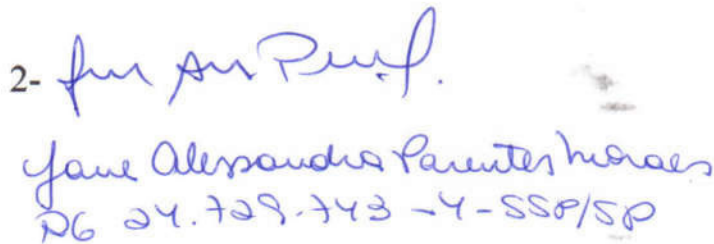 2-
Jane Alessandra Parentes Moraes
RG 24.729.743-4-SSP/SP